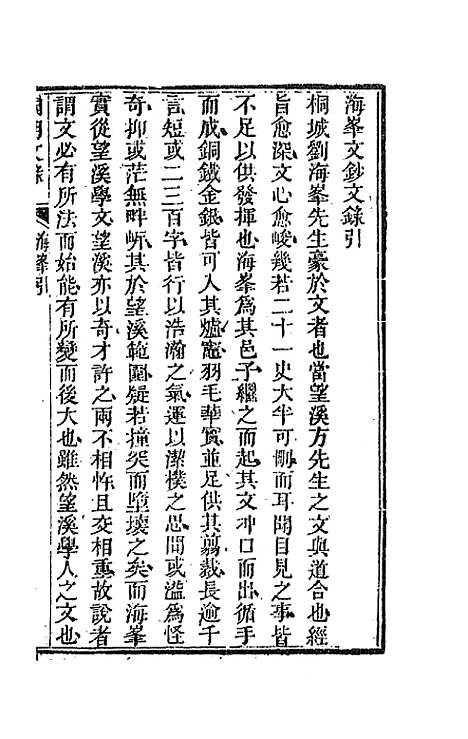 海峯文鈔文錄引
桐城劉海峯先生豪於文者也當望溪方先生之文與道合也經
旨愈深文心愈峻幾若二十一史大半可刪而耳聞目見之事皆
不足以供發揮也海峯爲其邑子繼之而起其文冲口而出循手
而成銅鐵金銀皆可入其爐竈羽毛華實並足供其剪裁長逾千
言短或二三百字皆行以浩瀚之氣運以潔樸之思間或溢爲怪
奇抑或茫無畔岍其於望溪範圍疑若撞突而墮壞之矣而海峯
實從望溪學文望溪亦以奇才許之兩不相怍且交相重故說者
謂文必有所法而始能有所變而後大也雖然望溪學人之文也
國朝文錄
海峯引